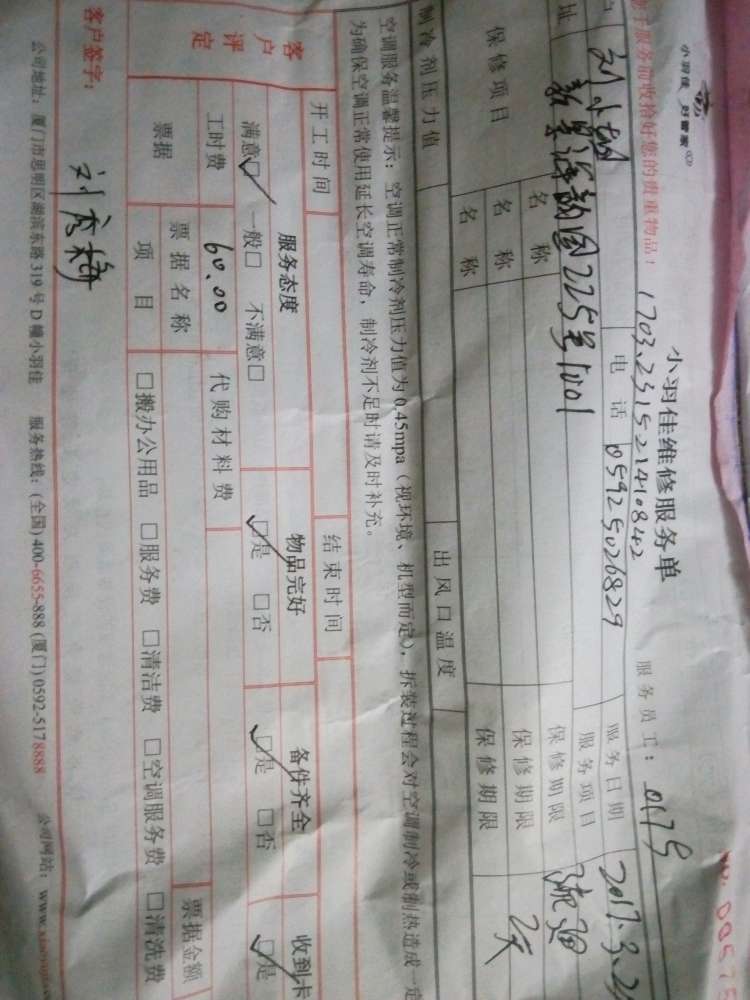 小羽佳 好管家
小羽佳维修服务单
您于服务前收拾好您的贵重物品！
1703.231521410842
服务员工：
电话 05925026829 服务日期 2017.3.2
址 新景海韵园225号1001 服务项目
保修项目 名称 保修期限
名称 保修期限 2天
名称 保修期限
制冷剂压力值 出风口温度
空调服务温馨提示：空调正常制冷剂压力值为0.45mpa（视环境、机型而定），拆装过程会对空调制冷或制热造成一定
为确保空调正常使用延长空调寿命，制冷剂不足时请及时补充。
开工时间 结束时间
客户评定 服务态度 物品完好 备件齐全 收到卡
满意☑ 一般□ 不满意□ ☑是 □否 ☑是 □否 ☑是
工时费 60.00 代购材料费
票据 票据名称 票据金额
项目 □搬办公用品 □服务费 □清洁费 □空调服务费 □清洗费
客户签字：
公司地址：厦门市思明区湖滨东路319号D幢小羽佳 服务热线：(全国)400-6655-888 (厦门)0592-5178888 公司网站：www.xiaoyujia